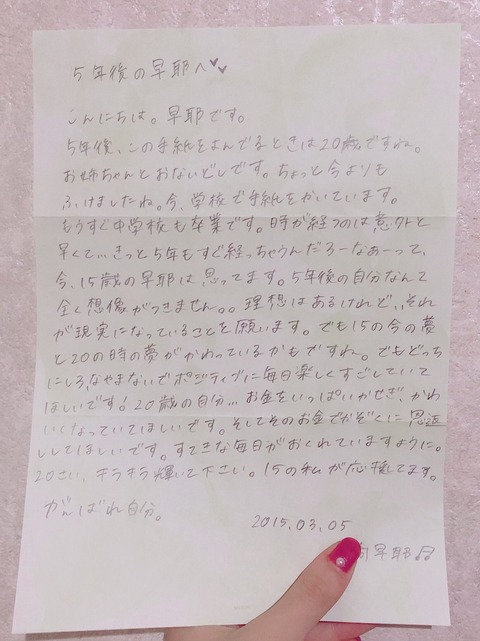 5年後の早耶へ♥♥
こんにちは。早耶です。
5年後、この手紙をよんでるときは20歳ですね。
お姉ちゃんとおないどしです。ちょっと今よりも
ふけましたね。今、学校で手紙をかいています。
もうすぐ中学校も卒業です。時が経つのは意外と
早くて…きっと5年もすぐ経っちゃうんだろーなぁーって、
今、15歳の早耶は思ってます。5年後の自分なんて
全く想像がつきません。。理想はあるけれど、、それ
が現実になっていることを願います。でも15の今の夢
と20の時の夢がかわっているかもですね。でもどっち
にしろなやまないでポジティブに毎日楽しくすごしていて
ほしいです!20歳の自分…お金をいっぱいかせぎ、かわ
いくなっていてほしいです。そしてそのお金でかぞくに恩返
ししてほしいです。すてきな毎日がおくれていますように。
20さい、キラキラ輝いて下さい。15の私が応援してます。
がんばれ自分。
2015.03.05
早耶♫